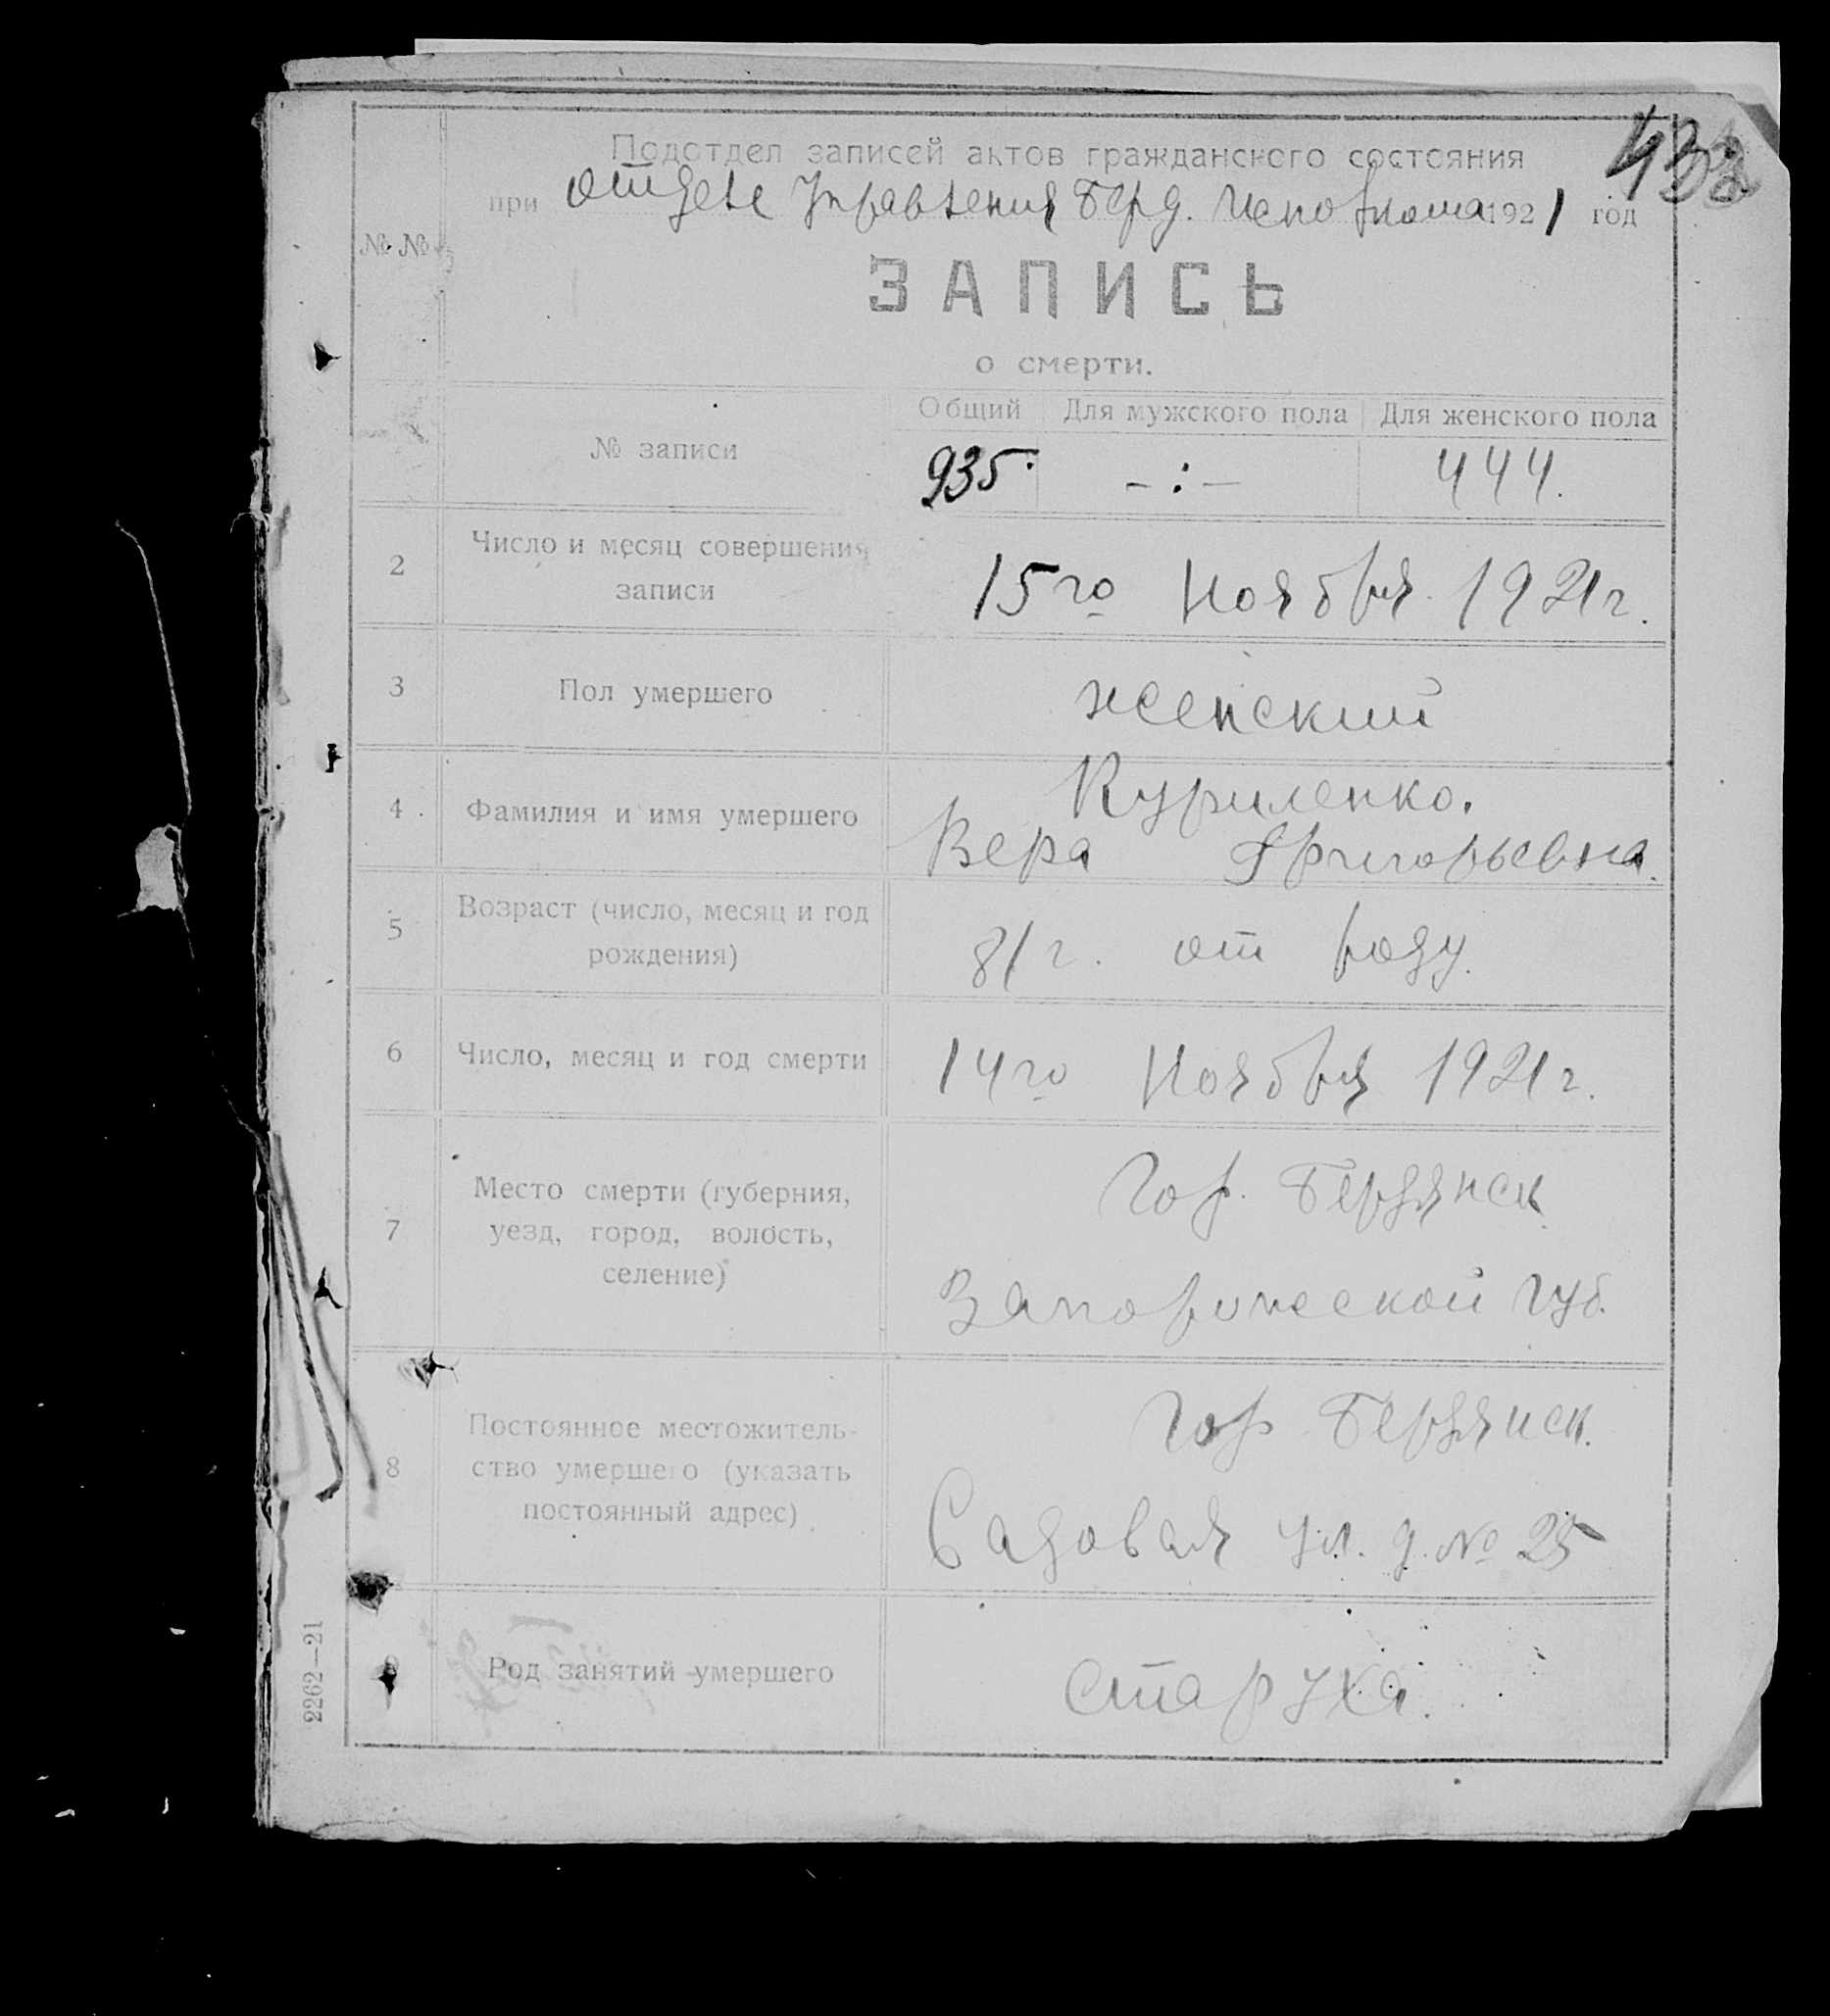 Подотдел записей актов гражданского состояния
при отделе Управления Берд. Исполкома 1921 год
№ №
ЗАПИСЬ
о смерти.
Общий Для мужского пола Для женского пола
№ записи 935. -:- 444.
2 Число и месяц совершения
записи
15го Ноября 1921 г.
3 Пол умершего женский
4. Фамилия и имя умершего
Куриленко.
Вера Григорьевна.
5 Возраст (число, месяц и год
рождения)
81 г. от роду.
6 Число, месяц и год смерти 14го Ноября 1921 г.
7 Место смерти (губерния,
уезд, город, волость,
селение)
Гор. Бердянск.
Запорожской губ.
8 Постоянное местожитель-
ство умершего (указать
постоянный адрес)
Гор Бердянск.
Садовая ул. д. № 25
9 Род занятий умершего старуха.
2262—21